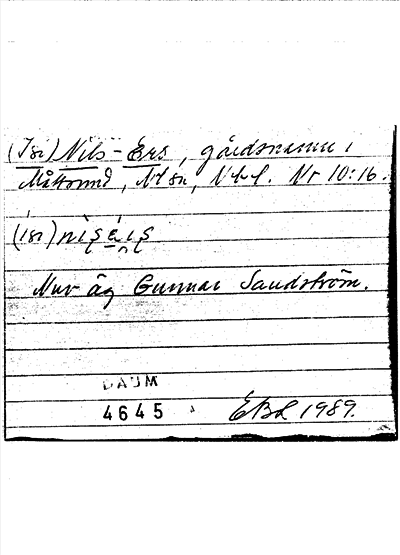 (Isi) Nils-Ers, gårdsnamn i
Måttsund, Nlsn, Nbl. Nr 10:16.
(isi) nìṣèıṣ
Nuv äg Gunnar Sandström.
DAUM
4645
EBL 1989.